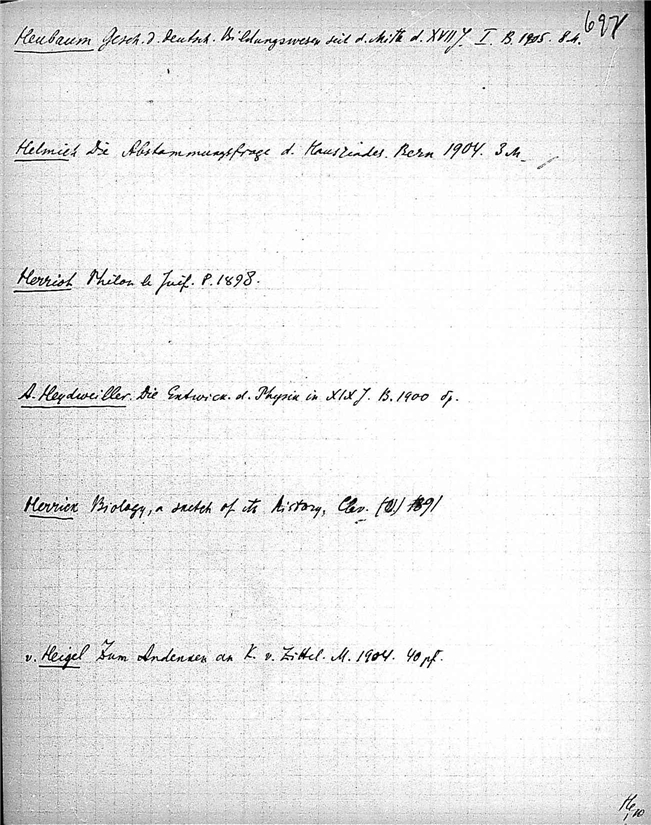 697
Heubaum Gesch. d. Deutsch. Bildungswesen seit d. Mitte d. XVII J. I. B. 1905. 8 M.
Helmich Die Abstammungsfrage d. Hausrindes. Bern 1904. 3 M.
Herriot Philon le Juif. P. 1898.
A. Heydweiller. Die Entwick. d. Physik in XIX J. B. 1900
Herrick Biology, a sketch of its history, Clev. (O.) 1891
v. Heigel Zum Andenken an K. v. Zittel. M. 1904. 40 pf.
He, 10